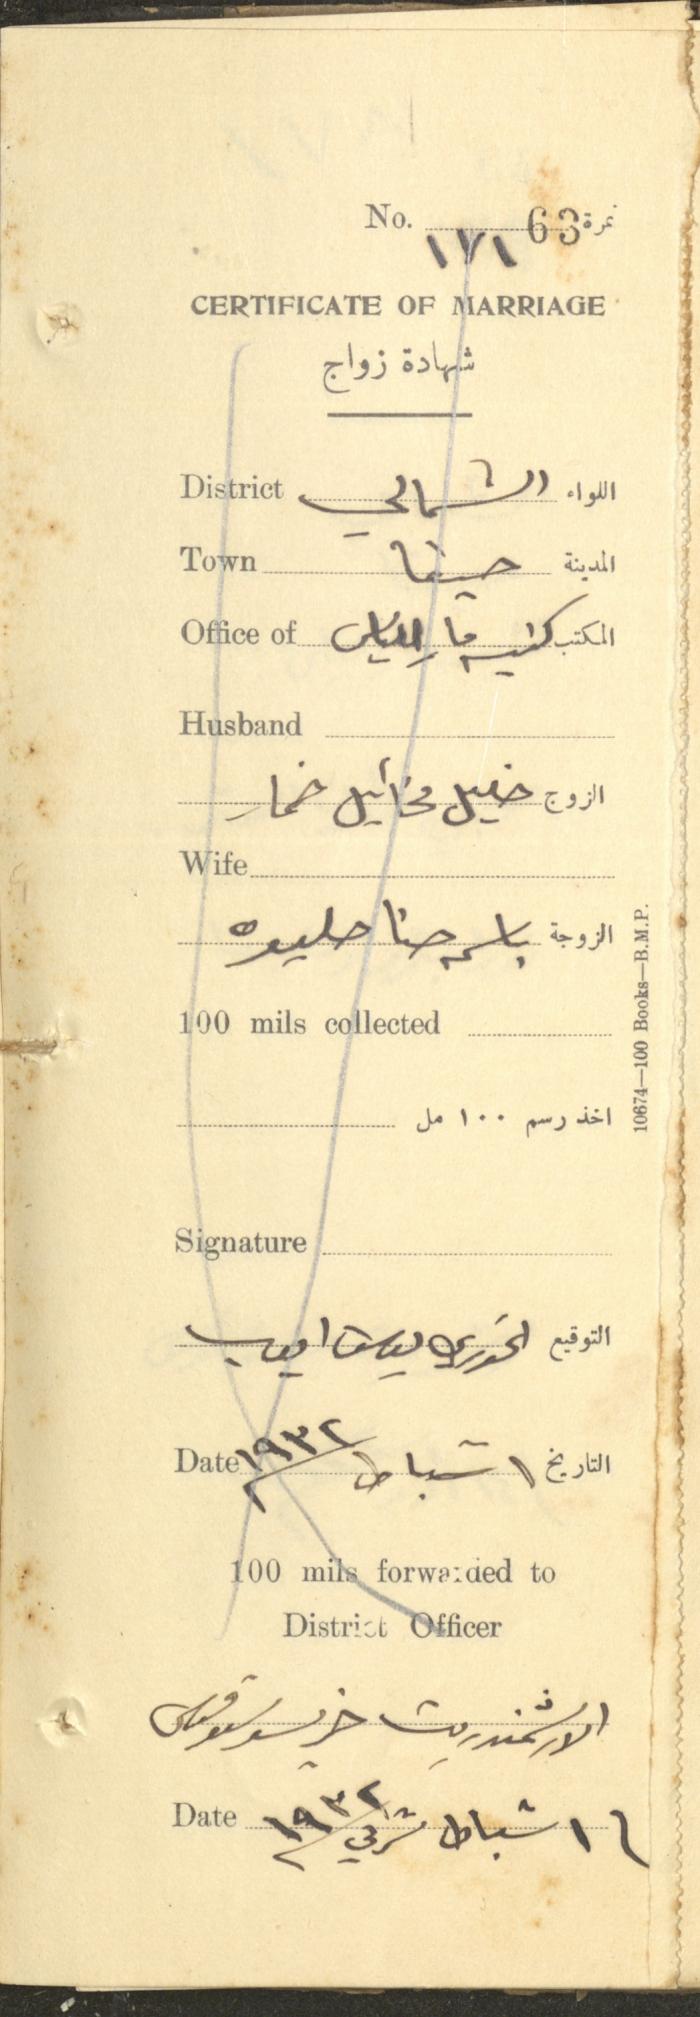 No. 63 نمرة
١٧١
CERTIFICATE OF MARRIAGE
شهادة زواج
District الشمالي اللواء
Town حيفا المدينة
Office of كنيسة مار الياس المكتب
Husband
الزوج خليل مخائيل خمار
Wife
الزوجة حنا
100 mils collected
اخذ رسم ١٠٠ مل
Signature
التوقيع الخوري ايوب
Date ١ شباط ١٩٣٢ التاريخ
100 mils forwarded to
District Officer
الارشمندريت
Date ١ شباط شرقي ١٩٣٢
10674—100 Books—B.M.P.